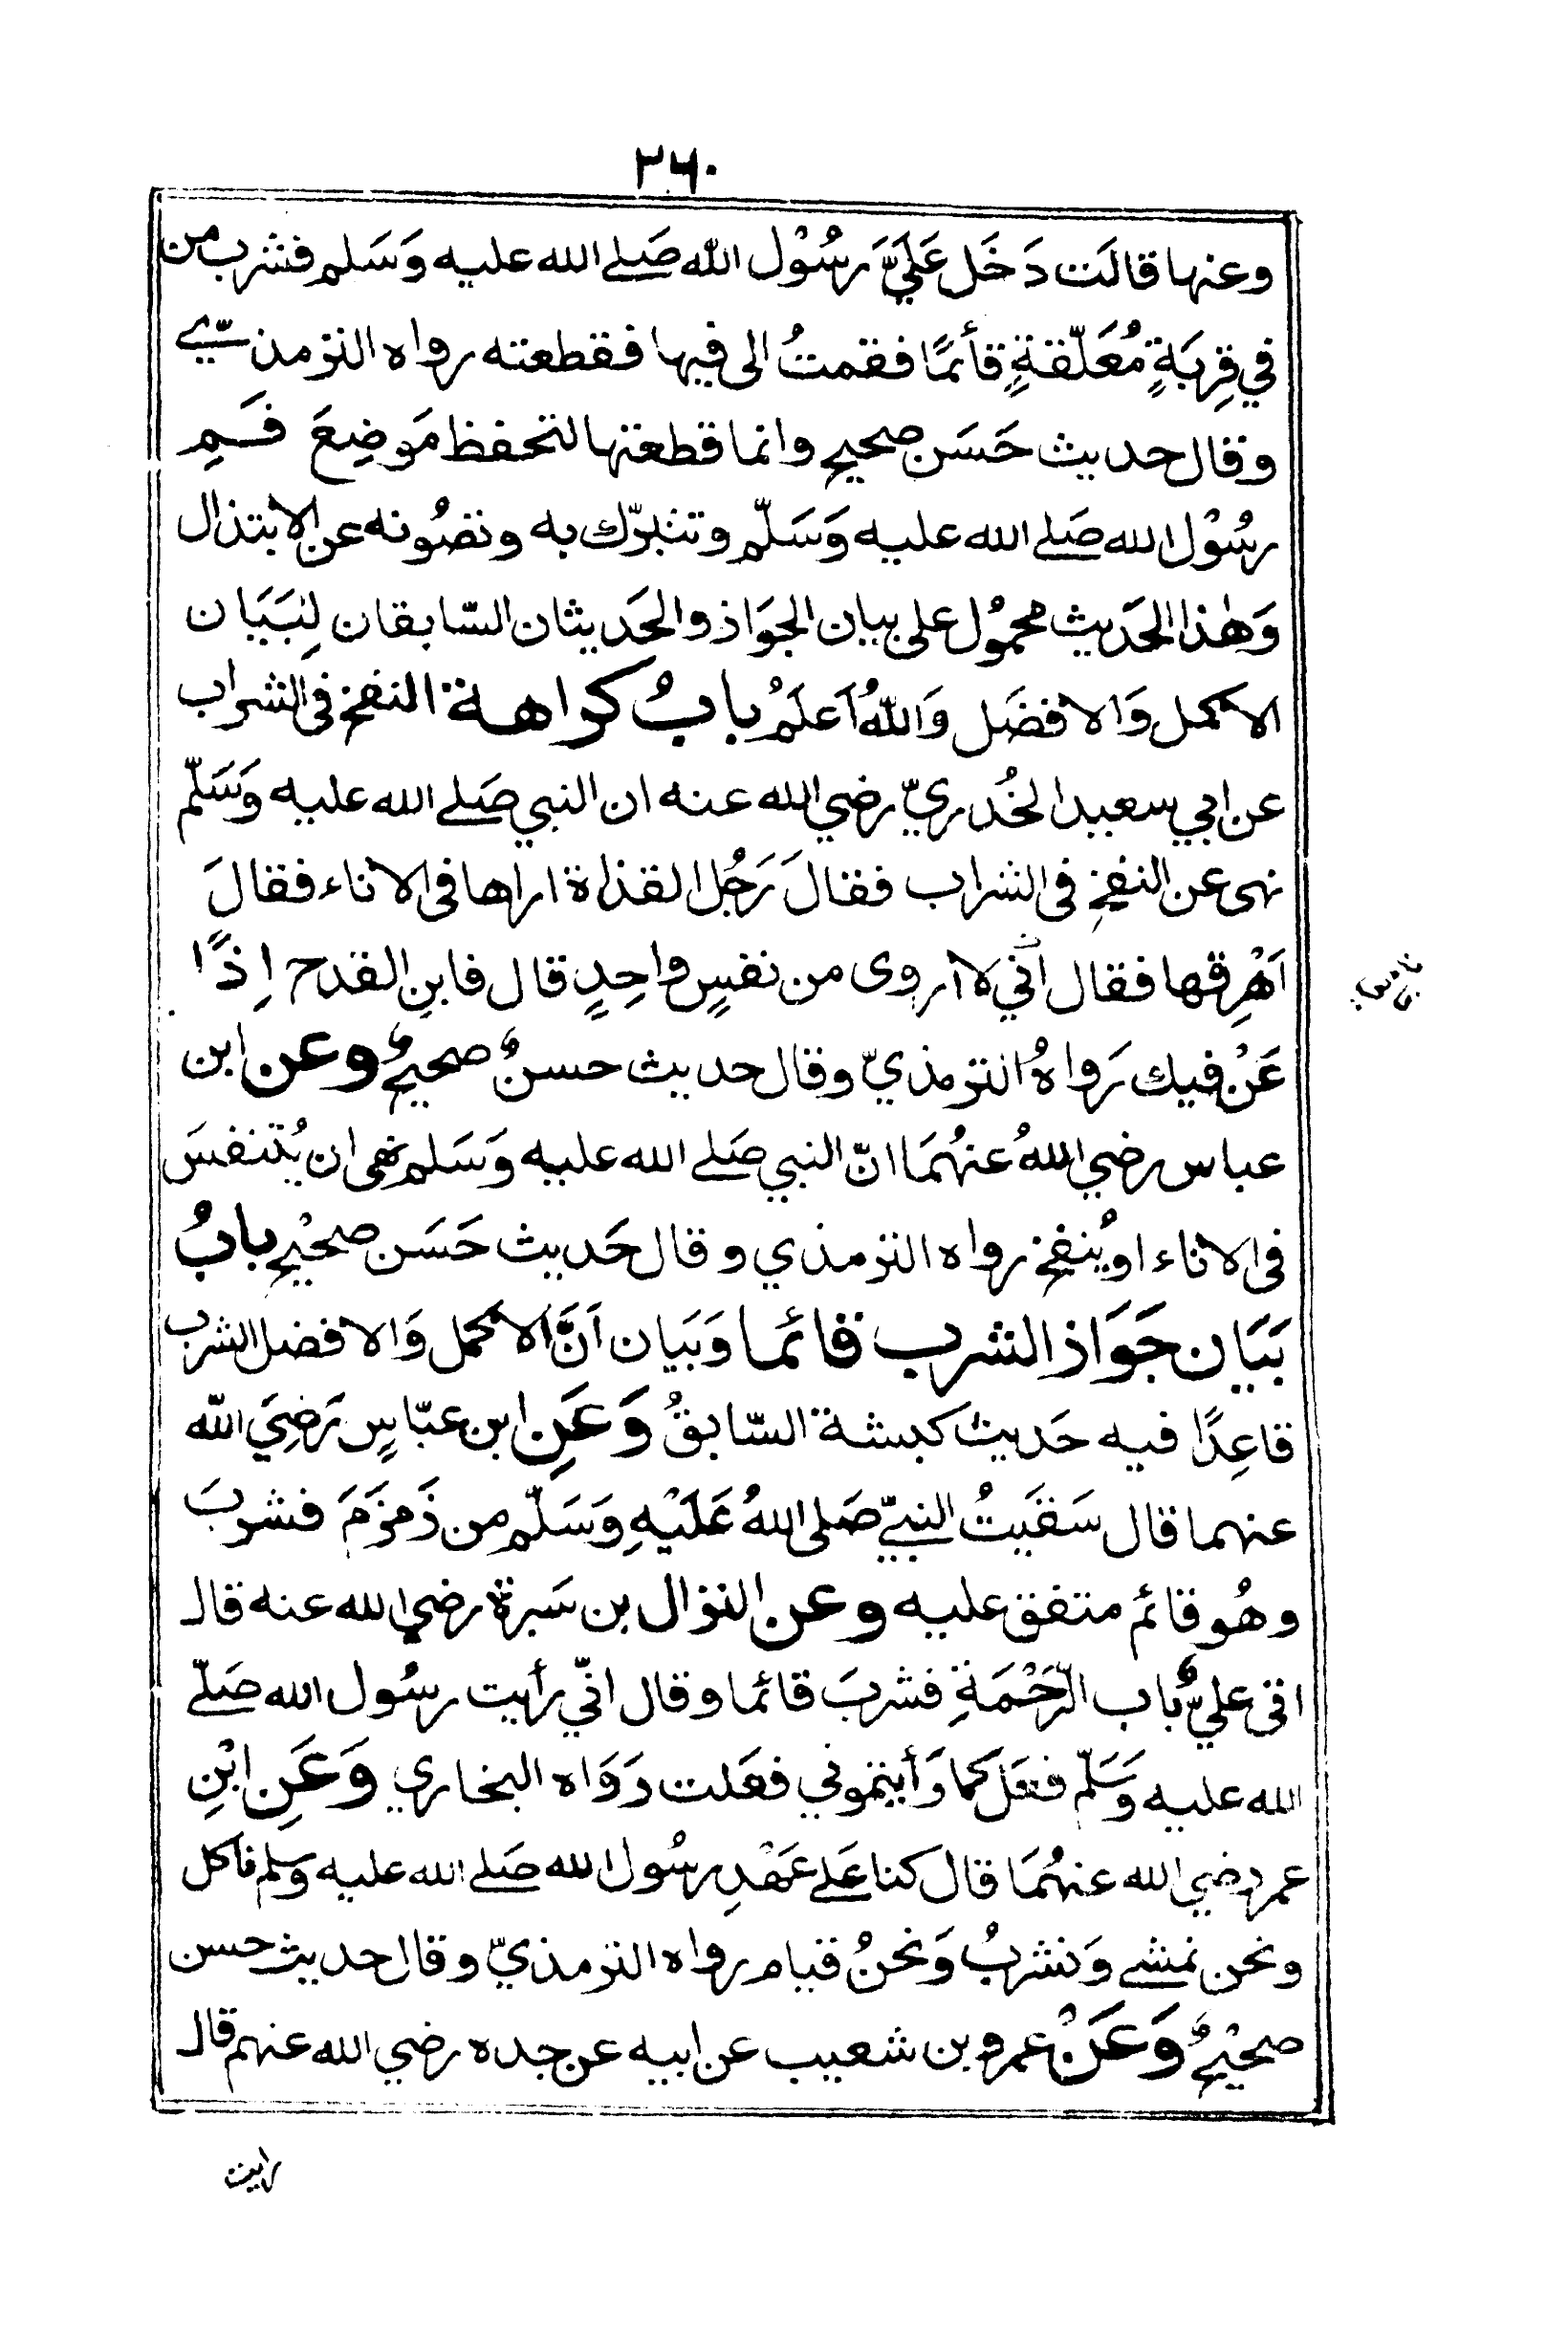 ٢٦٠
وعنها قالَت دَخَل عَلَيَّ رسُوْل اللّٰه صَلے الله عليه وَسَلم فشرب من
في قِربَةٍ مُعَلّقةٍ قأئمًا فقمتُ الى فيها فقطعته رواه الترمذيّ
وقال حديث حَسَن صحيح وانما قطعتها لتحفظ مَوضِعَ فَمِ
رسُوْل الله صَلے الله عليه وَسَلّم وتتبرّك به وتصُونه عن الابتذال
وَهٰذا الحَديث محمُول على بيان الجَوَاز والحَديثان السّابقان لِبَيَان
الاكمل وَالافضَل وَاللّٰهُ اَعلَمُ بابُ كراهة النفخ فى الشراب
عن ابي سعيد الخُدريّ رضي الله عنه ان النبي صَلے الله عليه وَسَلّم
نهى عن النفخِ فى الشراب فقالَ رَجُل القذاة اراها فى الاناء فقالَ
اَهْرِقها فقال انّي لا أروى من نفسٍ واحِدٍ قال فابنِ القدح اِذًا
عَنْ فيك رَواهُ الترمذيّ وقال حديث حسنٌ صحيحٌ وعن ابن
عباس رضي اللّٰهُ عنهُمَا انّ النبي صَلے الله عليه وَسَلم نهى ان يُتنفسَ
فى الاناء اويُنفخ رواه الترمذي وقال حَديث حَسَن صحيْح بابُ
بَيَان جَوَاز الشرب قائما وَبَيان اَنَّ الاكمل وَالافضل الشرب
قاعِدًا فيه حَديث كبشة السّابقُ وَعَنِ ابن عبّاسٍ رَضِيَ اللّٰه
عنهما قال سَقَيتُ النبيّ صَلى اللهُ عَلَيْهِ وَسَلّم من زَمزَمَ فشربَ
وهُو قائم متفق عليه وعن النزال بن سَبرة رضي الله عنه قال
اتى عليٌّ باب الرَّحْمَةِ فشربَ قائما وقال انّي رأيت رسُول الله صَلّے
الله عليه وَسَلّم فعَل كما رَأيتموني فعَلت رَوَاه البخاري وَعَنِ ابْنِ
عمر رضي الله عنهُمَا قال كنا عَلے عَهْدِ رسُول الله صَلے الله عليه وسلم ناكل
ونحن نمشے وَنشربُ وَنحنُ قيام رواه الترمذيّ وقال حديث حسن
صحيْحٌ وَعَنْ عمرو بن شعيب عن ابيه عن جده رضي الله عنهم قال
رايت